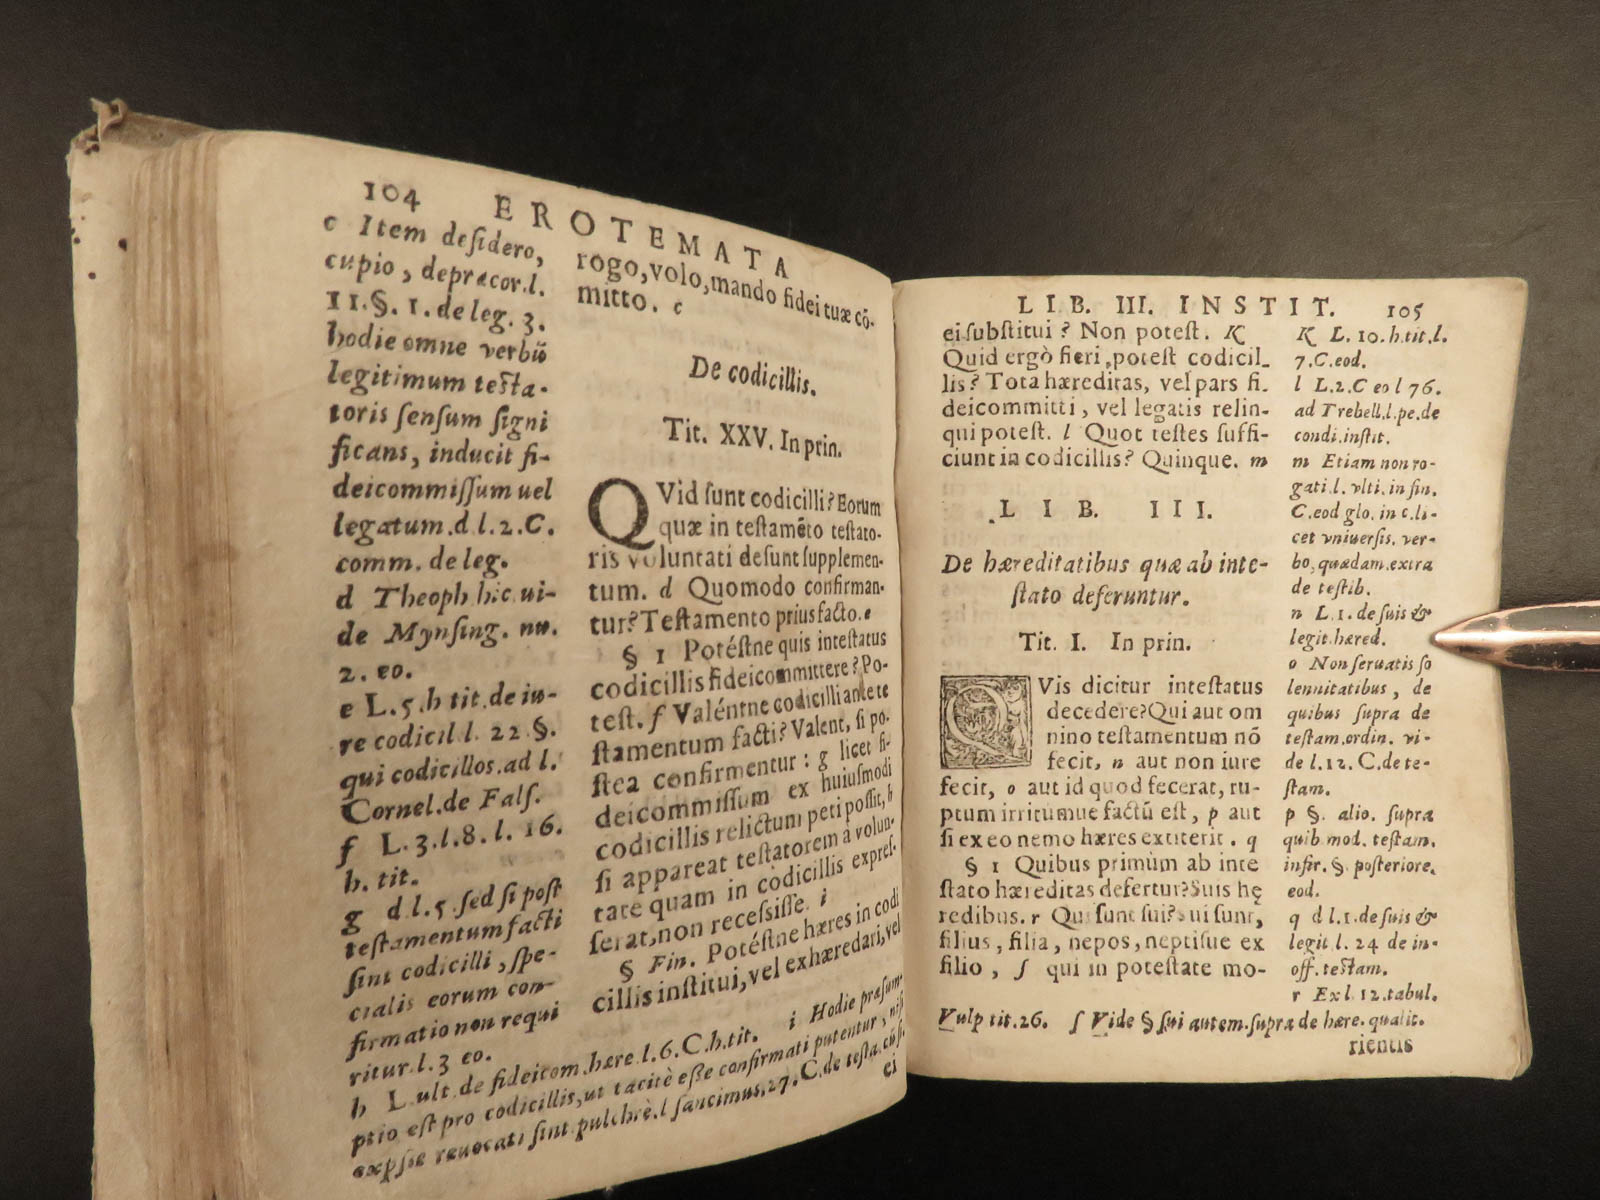 104 EROTEMATA
c Item desidero,
cupio, deprecor.l.
11.§. 1. de leg. 3.
hodie omne verbū
legitimum testa-
toris sensum signi
ficans, inducit fi-
deicommissum uel
legatum. d l. 2. C.
comm. de leg.
d Theoph hic ui-
de Mynsing. nu.
2. eo.
e L. 5. h tit. de iu-
re codicil l. 22 §.
qui codicillos. ad l.
Cornel. de Fals.
f L. 3. l. 8. l. 16.
h. tit.
g d l. 5 sed si post
testamentum facti
sint codicilli, spe-
cialis eorum con-
firmatio non requi
ritur. l. 3 eo.
rogo, volo, mando fidei tuæ cō-
mitto. c
De codicillis.
Tit. XXV. In prin.
QVid sunt codicilli? Eorum
quæ in testamēto testato-
ris voluntati desunt supplemen-
tum. d Quomodo confirman-
tur? Testamento prius facto. e
§ 1 Potéstne quis intestatus
codicillis fideicommittere? Po-
test. f Valéntne codicilli ante te
stamentum facti? Valent, si po-
stea confirmentur: g licet fi-
deicommissum ex huiusmodi
codicillis relictum peti possit, h
si appareat testatorem à volun-
tate quam in codicillis expres-
serat, non recessisse. i
§ Fin. Potéstne hæres in codi
cillis institui, vel exhæredari, vel
h L. ult. de fideicom. hære. l. 6. C. h. tit. i Hodie præsum-
ptio est pro codicillis, ut tacitè esse confirmati putentur, nisi
expsse reuocati sint. pulchrè. l sancimus. 27. C. de testa.
ei
LIB. III. INSTIT. 105
ei substitui? Non potest. K
Quid ergò fieri potest codicil-
lis? Tota hæreditas, vel pars fi-
deicommitti, vel legatis relin-
qui potest. l Quot testes suffi-
ciunt in codicillis? Quinque. m
LIB. III.
De hæreditatibus quæ ab inte-
stato deferuntur.
Tit. I. In prin.
QVis dicitur intestatus
decedere? Qui aut om
nino testamentum nō
fecit, n aut non iure
fecit, o aut id quod fecerat, ru-
ptum irritumue factū est, p aut
si ex eo nemo hæres extiterit. q
§ 1 Quibus primùm ab inte
stato hæreditas defertur? Suis hę
redibus. r Qui sunt sui? Sui sunt,
filius, filia, nepos, neptisue ex
filio, s qui in potestate mo-
K L. 10. h. tit. l.
7. C. eod.
l L. 2. C eo l 76.
ad Trebell. l. pe. de
condi. instit.
m Etiam non ro-
gati. l. vlti. in fin.
C. eod glo. in c. li-
cet vniuersis. ver-
bo, quædam. extra
de testib.
n L. 1. de suis &
legit. hæred.
o Non seruatis so
lennitatibus, de
quibus supra de
testam. ordin. vi-
de l. 12. C. de te-
stam.
p §. alio. supra
quib mod. testam.
infir. §. posteriore.
eod.
q d l. 1. de suis &
legit l. 24 de in-
off. testam.
r Ex l. 12. tabul.
Vulp tit. 26. s Vide § sui autem. supra de hære. qualit.
rientis